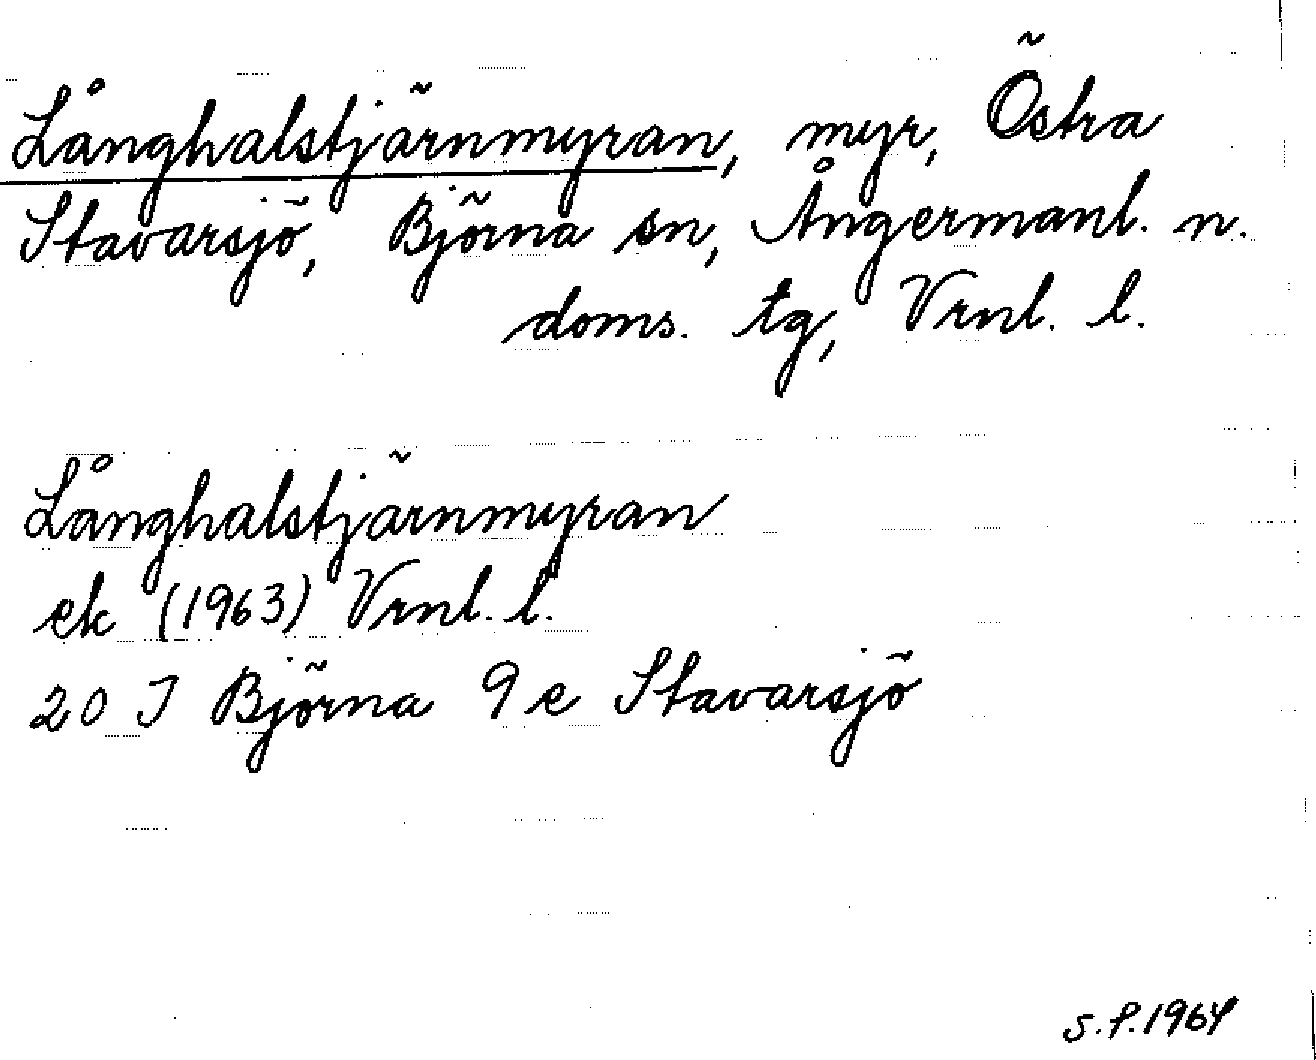 Långhalstjärnmyran, myr, Östra
Stavarsjö, Björna sn, Ångermanl. n.
doms. tg, Vrnl. l.
Långhalstjärnmyran
ek (1963) Vrnl. l.
20 J Björna 9 e Stavarsjö
S.P. 1964